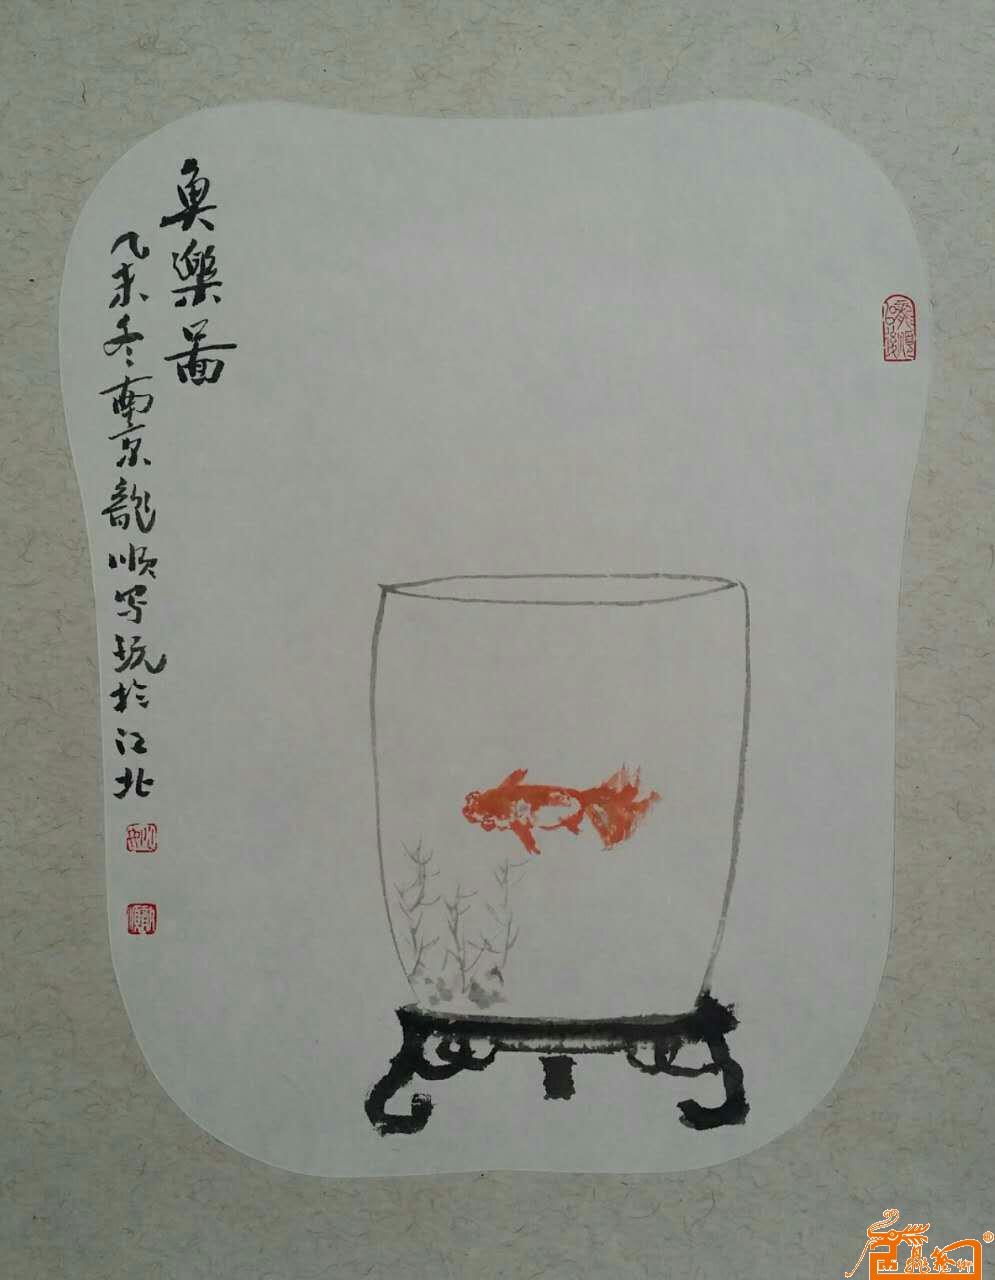 魚樂啚
乙未冬南京龍順写玩於江北